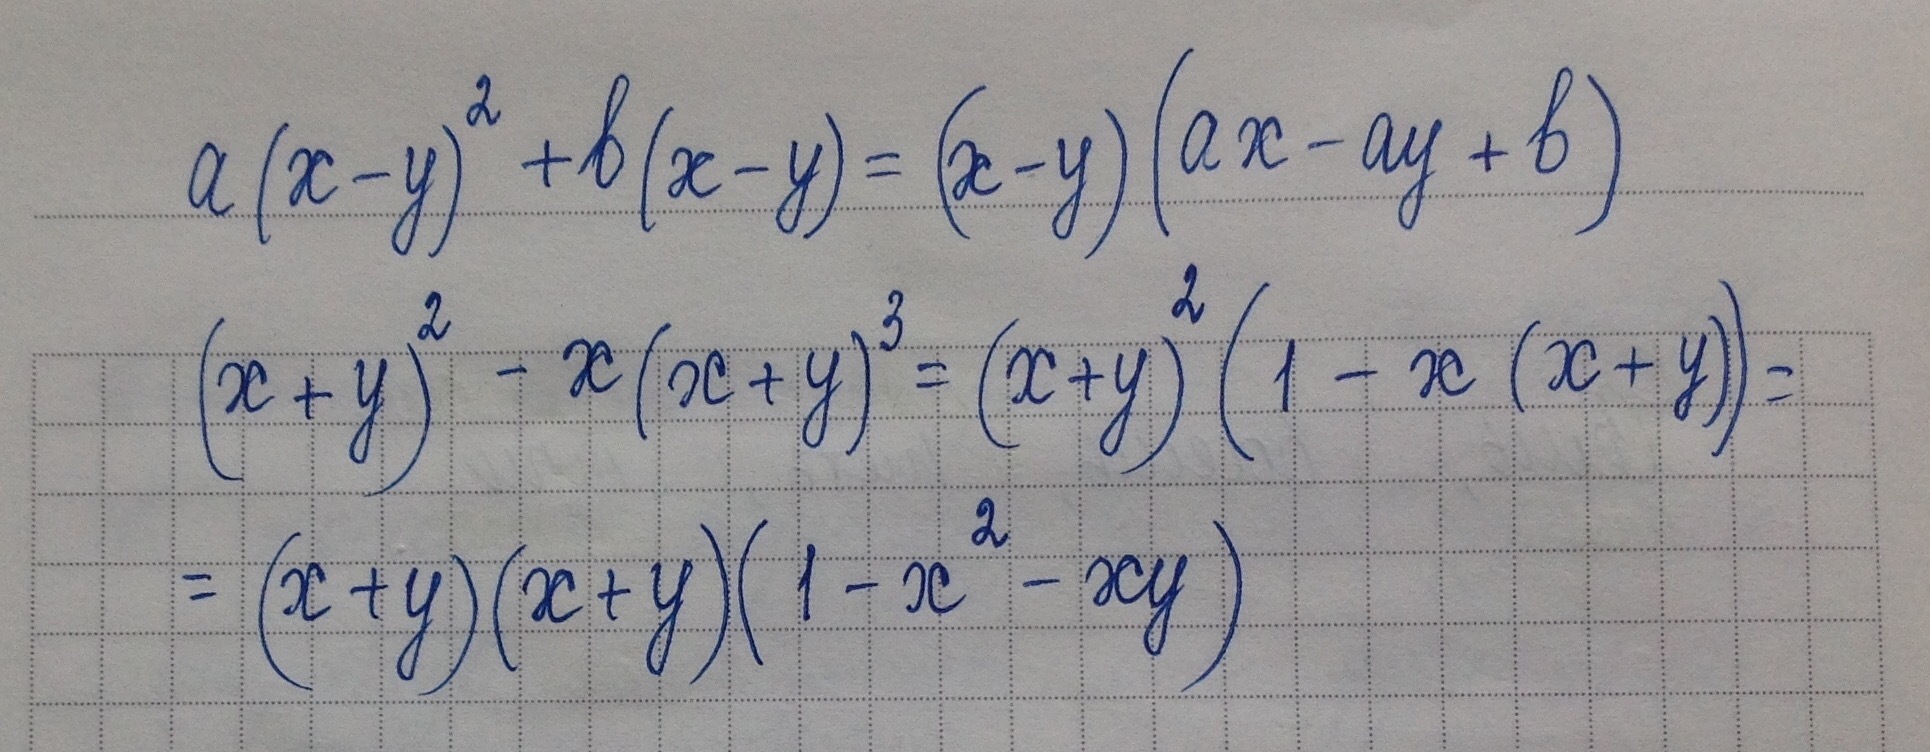 a(x-y)² + b(x-y) = (x-y)(ax - ay + b)
(x+y)² - x(x+y)³ = (x+y)²(1 - x(x+y)) =
= (x+y)(x+y)(1 - x² - xy)